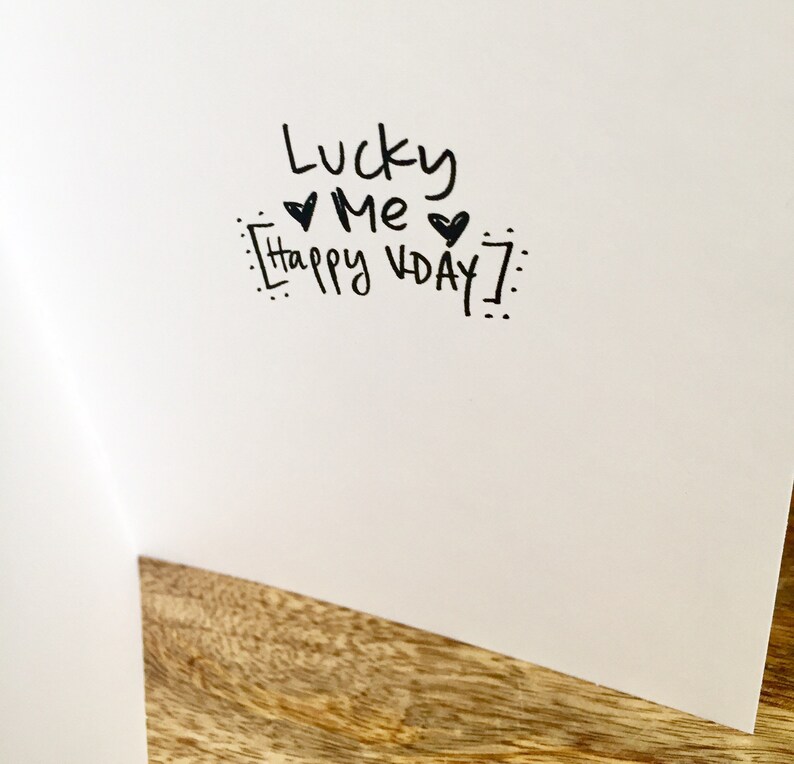 Lucky
Me
[Happy V-DAY]